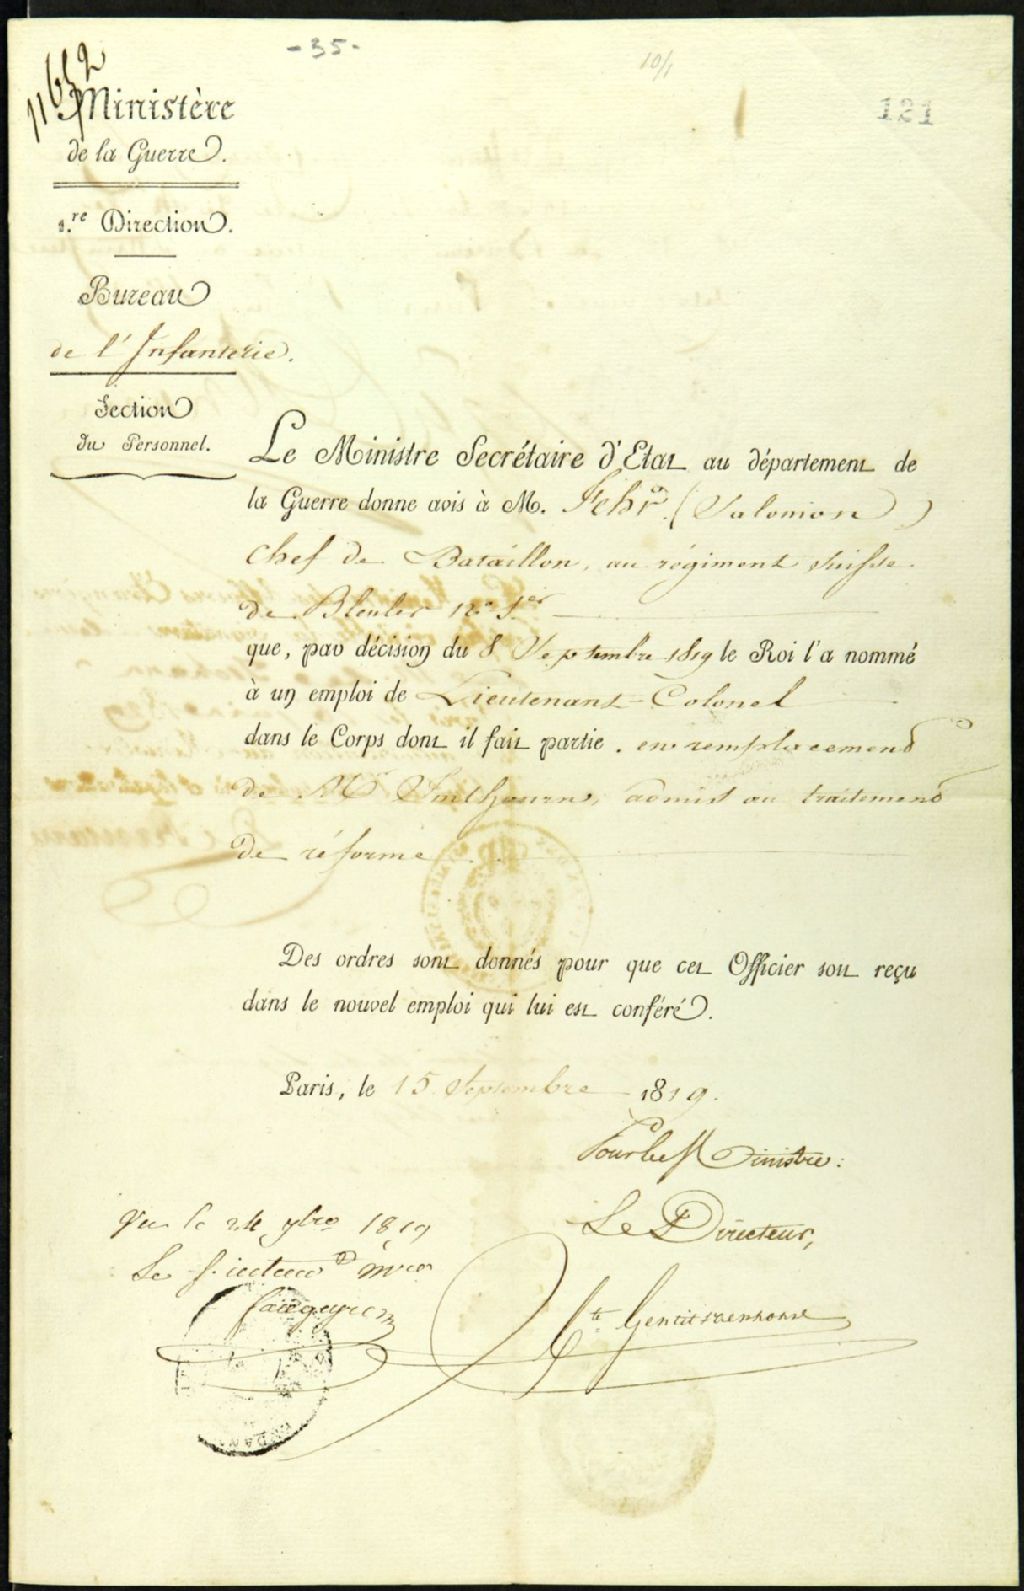 - 35 -
10/1
121
11652
Ministère
de la Guerre.
1.re Direction.
Bureau
de l'Infanterie.
Section
du Personnel.
Le Ministre Secrétaire d'Etat au département de
la Guerre donne avis à M. Fehr (Salomon)
Chef de Bataillon, au régiment Suisse
de Bleuler n.o 1.er
que, par décision du 8 Septembre 1819 le Roi l'a nommé
à un emploi de Lieutenant-Colonel
dans le Corps dont il fait partie, en remplacement
de Mr Imthourn, admis au traitement
de réforme
Des ordres sont donnés pour que cet Officier soit reçu
dans le nouvel emploi qui lui est conféré.
Paris, le 15 Septembre 1819.
Pour le Ministre:
Le Directeur,
Vu le 24 7bre 1819
Le
Cte Gentil St